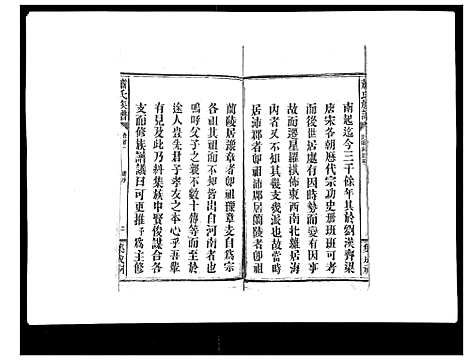 南起迄今三千餘年其於劉漢齊梁
唐宋各朝歷代宗功史冊班班可考
而後世居處有因時勢而變有因事
故而遷星羅棋佈東西南北雖居海
內者又不知其親支幾派也故當時
居沛郡者卽祖沛郡居蘭陵者卽祖
蘭陵居豫章者卽祖豫章支自爲宗
各祖其祖而不知皆出自河南者也
嗚呼父子之親不數十傳等而至於
途人豈先君子孝友之本心乎吾輩
有見及此乃糾集族中賢俊謀合各
支而修族譜議曰可更推予爲主修
蕭氏族譜
卷首
二